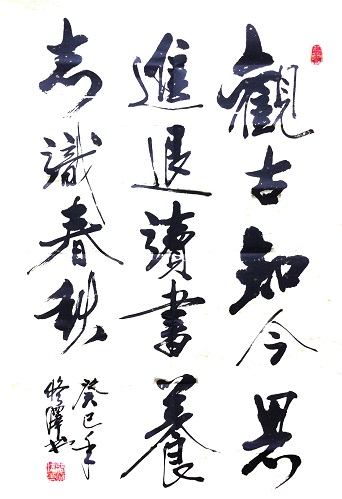 觀古知今思
進退讀書養
志識春秋
癸巳年